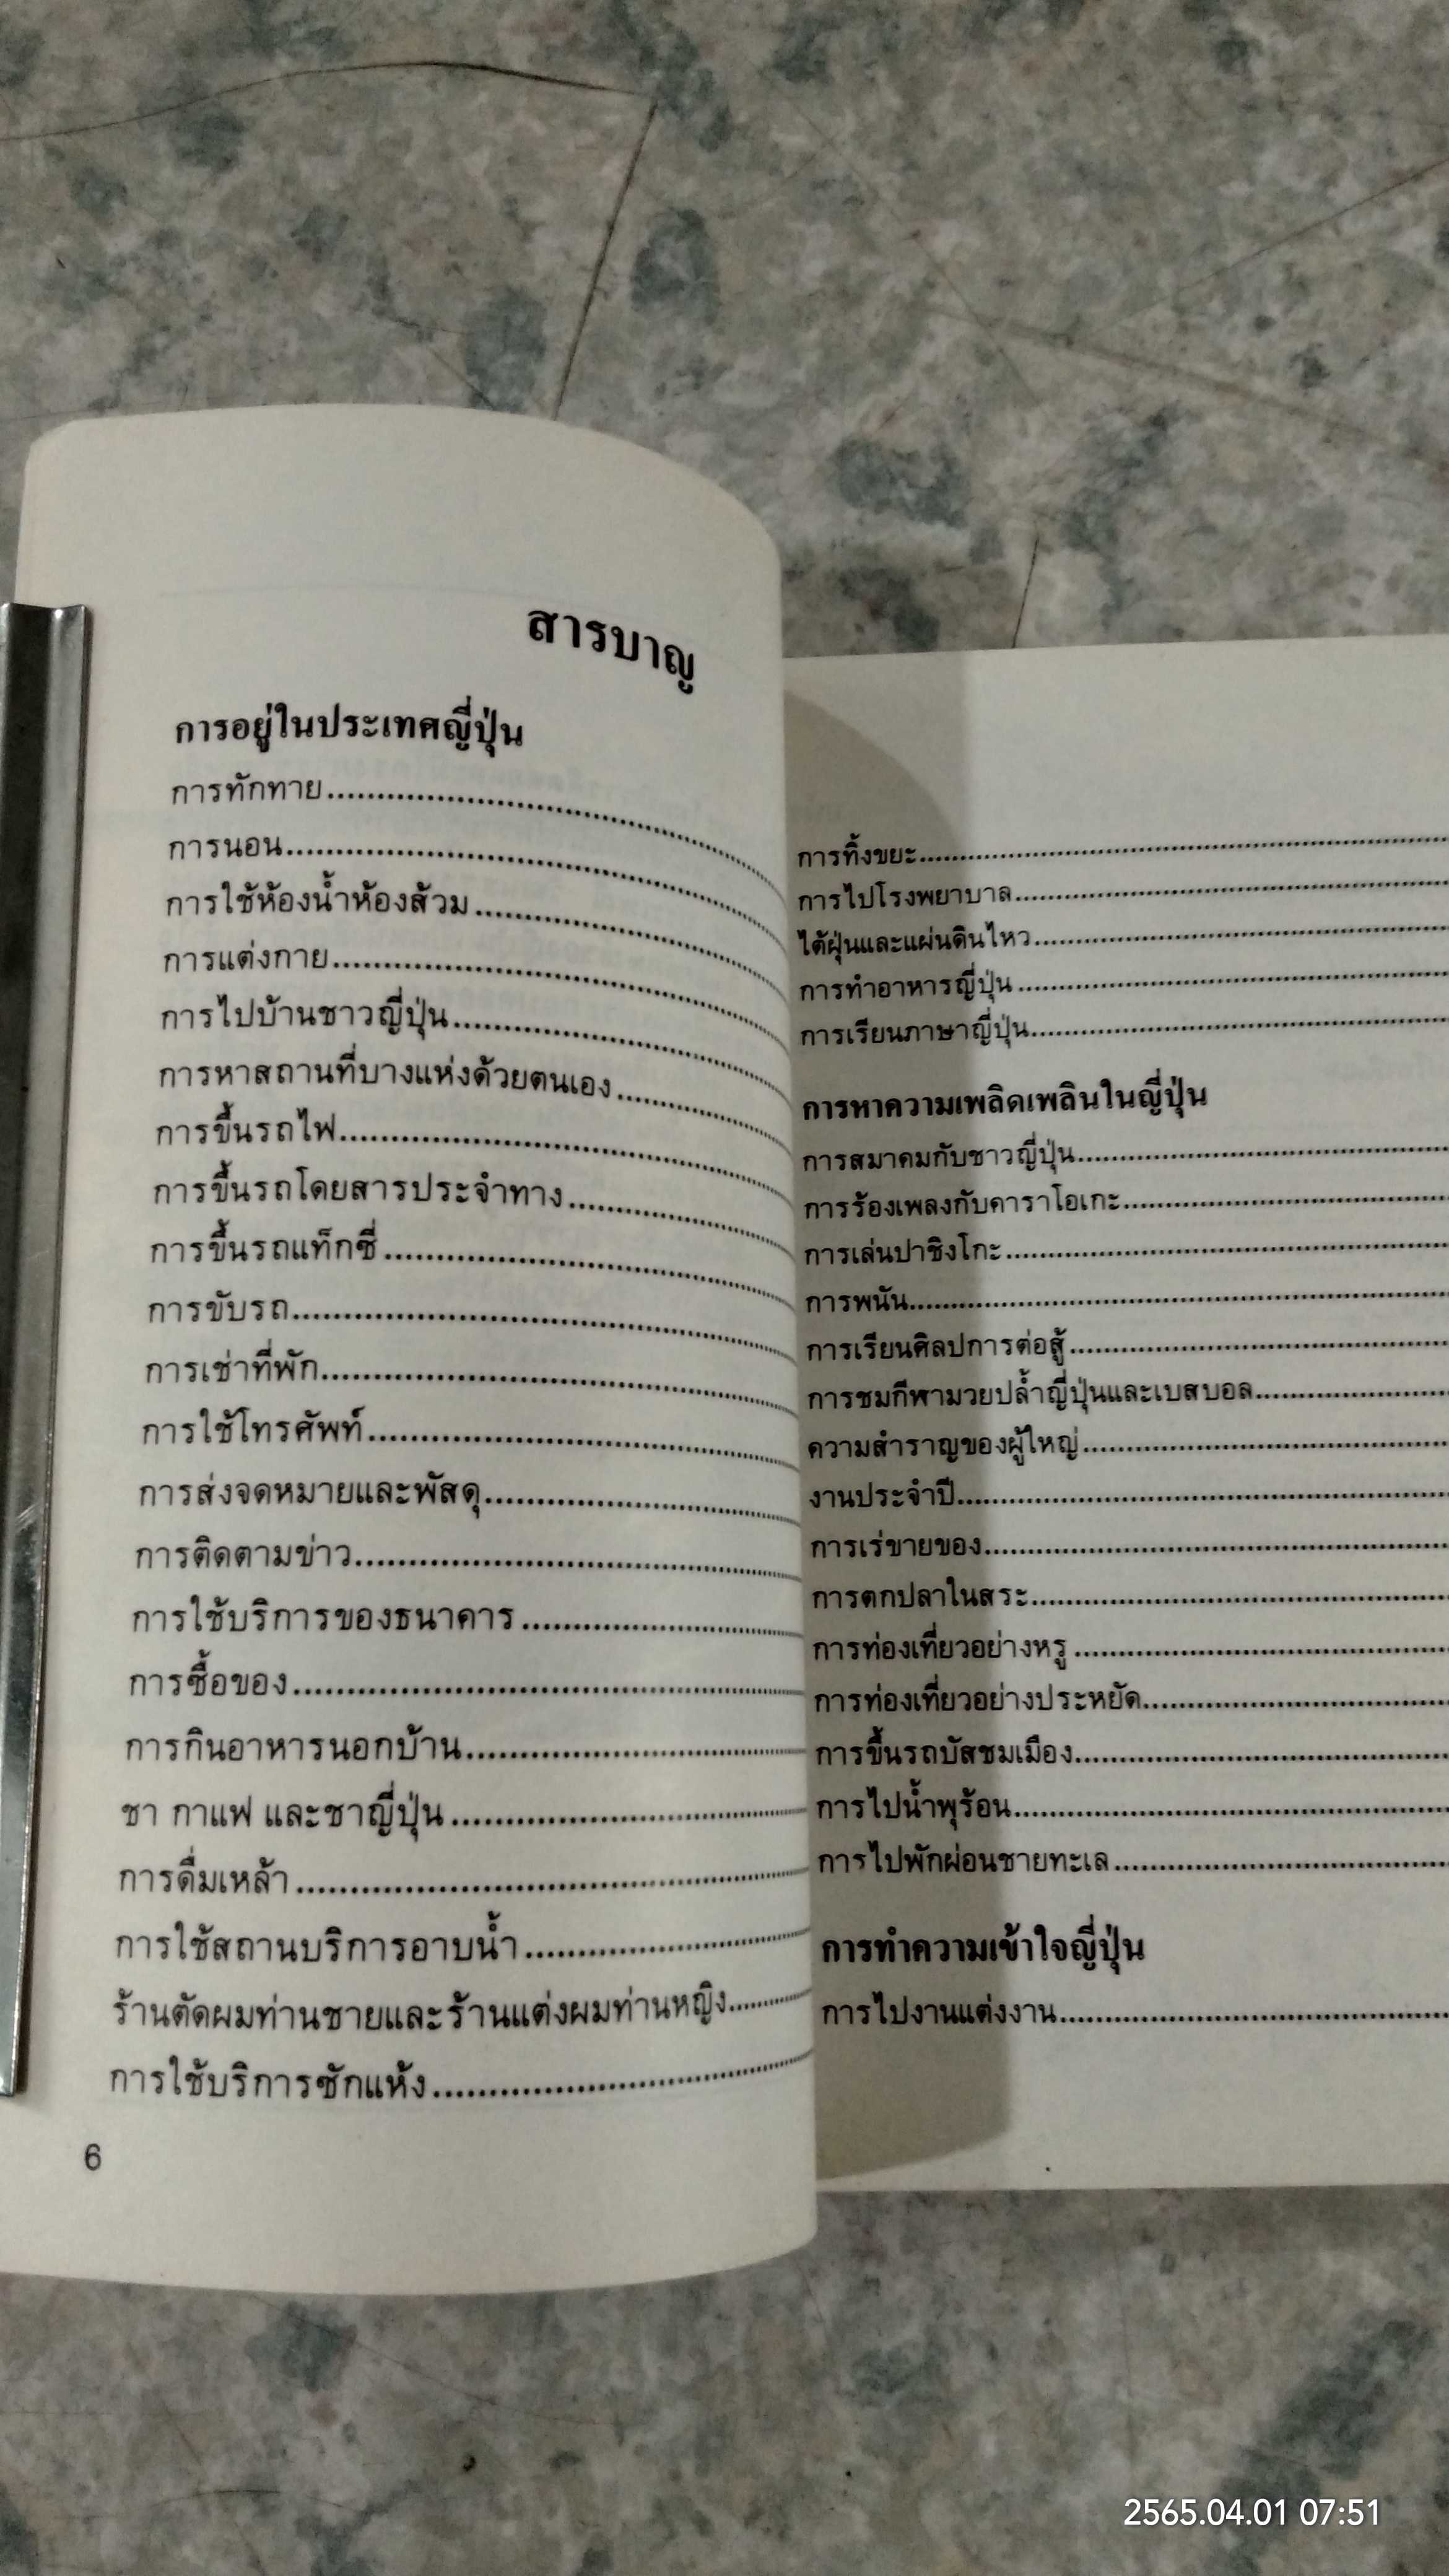 สารบาญ
การอยู่ในประเทศญี่ปุ่น
การทักทาย
การนอน
การใช้ห้องน้ำห้องส้วม
การแต่งกาย
การไปบ้านชาวญี่ปุ่น
การหาสถานที่บางแห่งด้วยตนเอง
การขึ้นรถไฟ
การขึ้นรถโดยสารประจำทาง
การขึ้นรถแท็กซี่
การขับรถ
การเช่าที่พัก
การใช้โทรศัพท์
การส่งจดหมายและพัสดุ
การติดตามข่าว
การใช้บริการของธนาคาร
การซื้อของ
การกินอาหารนอกบ้าน
ชา กาแฟ และชาญี่ปุ่น
การดื่มเหล้า
การใช้สถานบริการอาบน้ำ
ร้านตัดผมท่านชายและร้านแต่งผมท่านหญิง
การใช้บริการซักแห้ง
6
การทิ้งขยะ
การไปโรงพยาบาล
ไต้ฝุ่นและแผ่นดินไหว
การทำอาหารญี่ปุ่น
การเรียนภาษาญี่ปุ่น
การหาความเพลิดเพลินในญี่ปุ่น
การสมาคมกับชาวญี่ปุ่น
การร้องเพลงกับคาราโอเกะ
การเล่นปาชิงโกะ
การพนัน
การเรียนศิลปการต่อสู้
การชมกีฬามวยปล้ำญี่ปุ่นและเบสบอล
ความสำราญของผู้ใหญ่
งานประจำปี
การเร่ขายของ
การตกปลาในสระ
การท่องเที่ยวอย่างหรู
การท่องเที่ยวอย่างประหยัด
การขึ้นรถบัสชมเมือง
การไปน้ำพุร้อน
การไปพักผ่อนชายทะเล
การทำความเข้าใจญี่ปุ่น
การไปงานแต่งงาน
2565.04.01 07:51